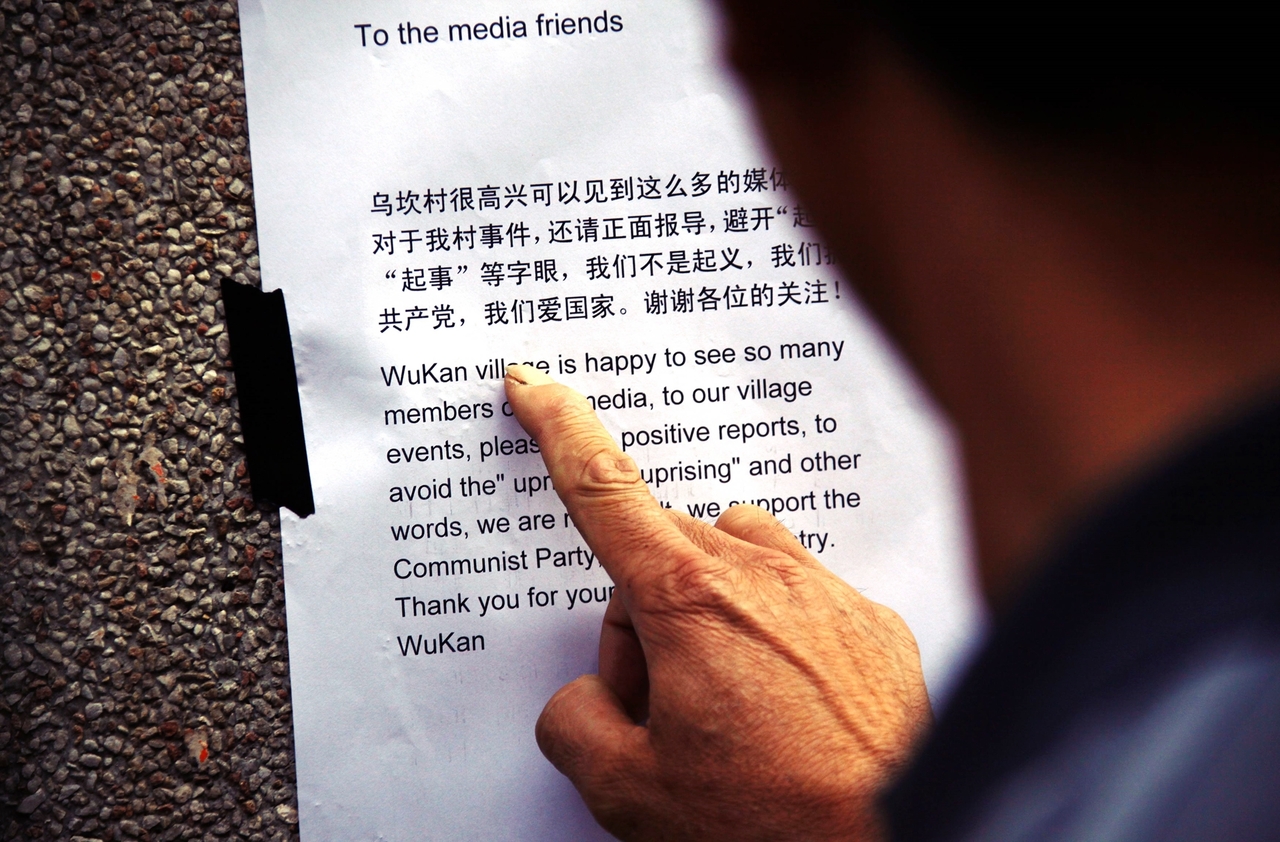 To the media friends
乌坎村很高兴可以见到这么多的媒体
对于我村事件，还请正面报导，避开“起
“起事”等字眼，我们不是起义，我们拥
共产党，我们爱国家。谢谢各位的关注！
WuKan village is happy to see so many
members media, to our village
events, positive reports, to
avoid the" uprising" and other
words, we are we support the
Communist Party,
Thank you for your
WuKan